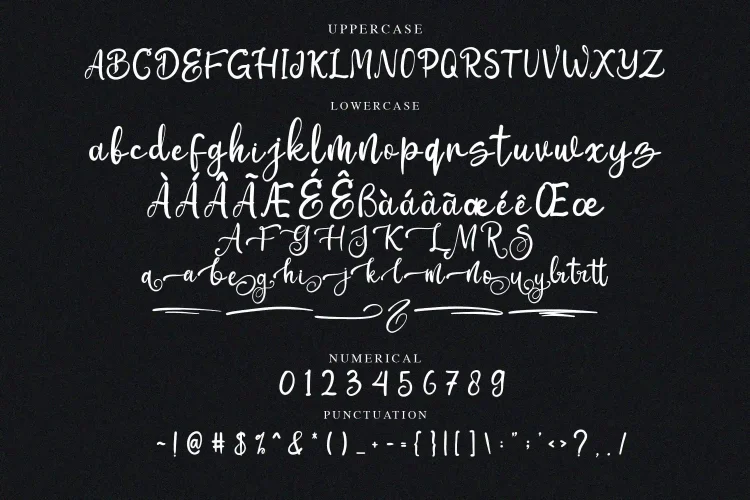 UPPERCASE
ABCDEFGHIJKLMNOPQRSTUVWXYZ
LOWERCASE
abcdefghijklmnopqrstuvwxyz
ÀÁÂÃÆÉÊßàáâãæéêŒœ
AFGHJKLMRS
NUMERICAL
0123456789
PUNCTUATION
~!@#$%^&*()_+-={}|[]\:";'<>?,./